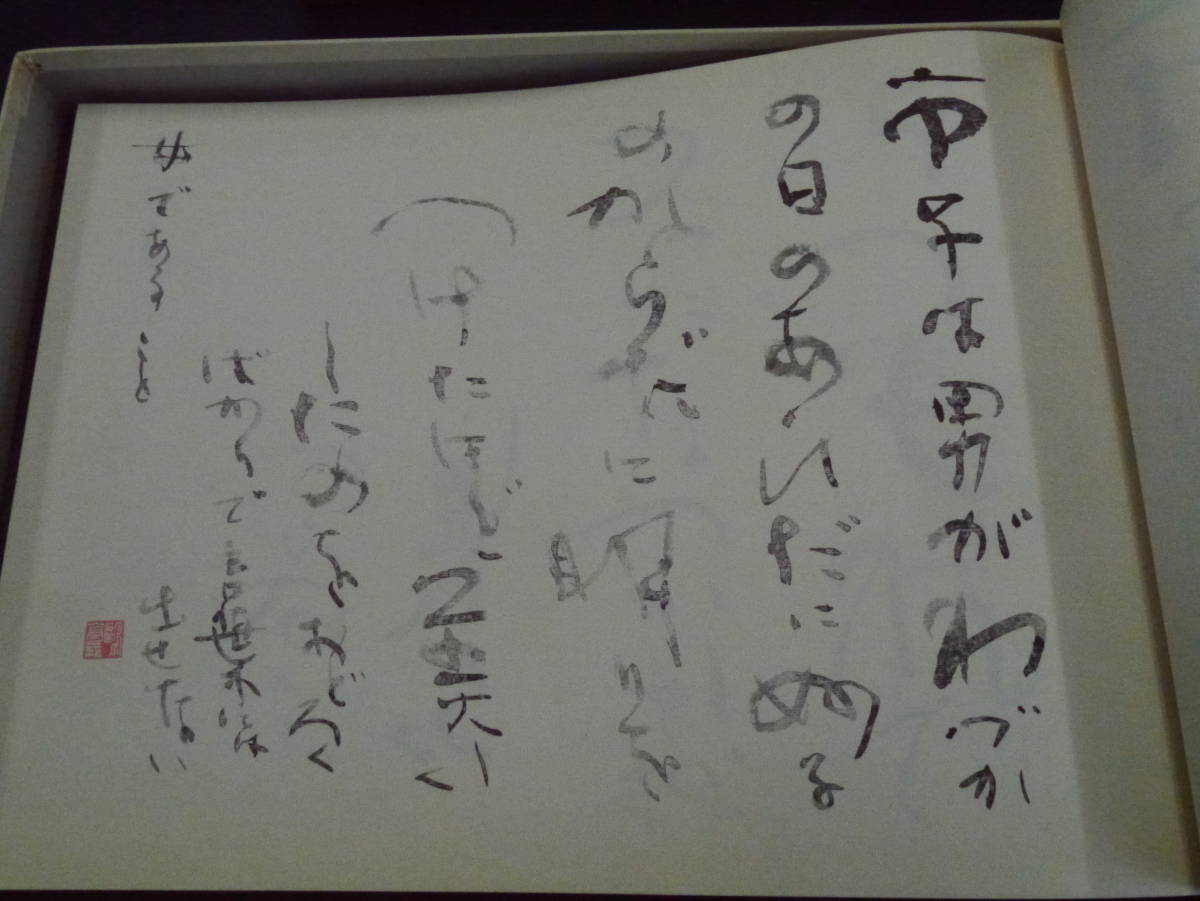 市子は男がわづか
の日のあいだにぬる
めからだに明りを
つけたほど
したのをおどろく
ばかりで言葉には
出せない
女であること